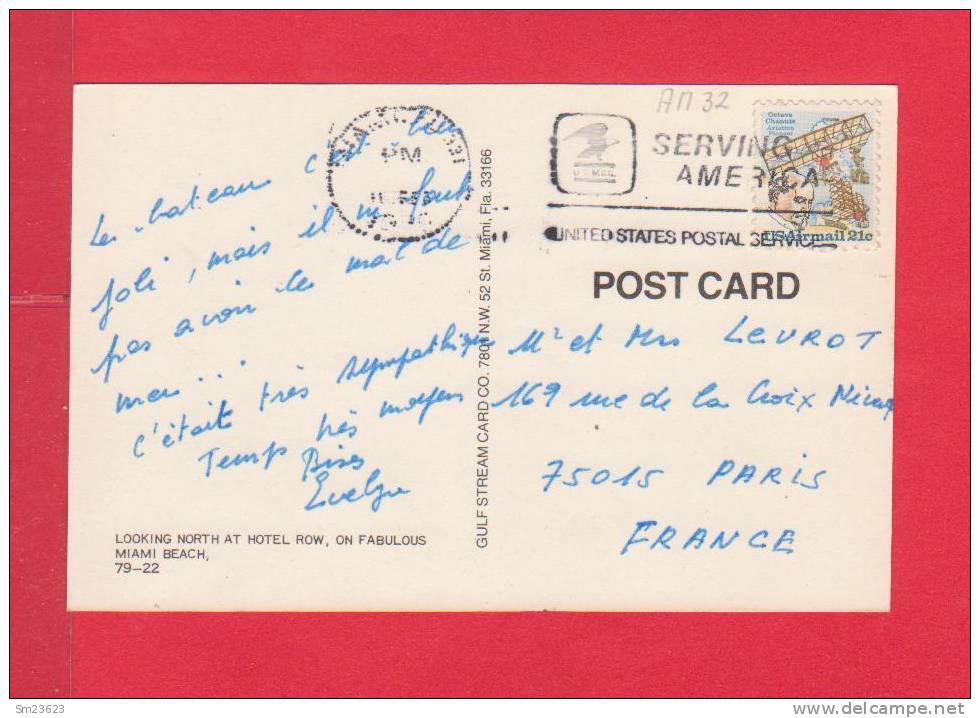 Le bateau c'est bien
joli, mais il ne faut
pas avoir le mal de
mer...
c'était très sympathique
Temps très moyen
Bises
Evelyne
LOOKING NORTH AT HOTEL ROW, ON FABULOUS
MIAMI BEACH,
79-22
GULF STREAM CARD CO. 7801 N.W. 52 St. Miami, Fla. 33166
PM
AM 32
U.S. MAIL
SERVING
AMERICA
UNITED STATES POSTAL SERVICE
Octave
Chanute
Aviation
Pioneer
USAirmail 21c
POST CARD
Mr et Mrs LEVROT
169 rue de la Croix Nivert
75015 PARIS
FRANCE
Sm23623
www.delcampe.net